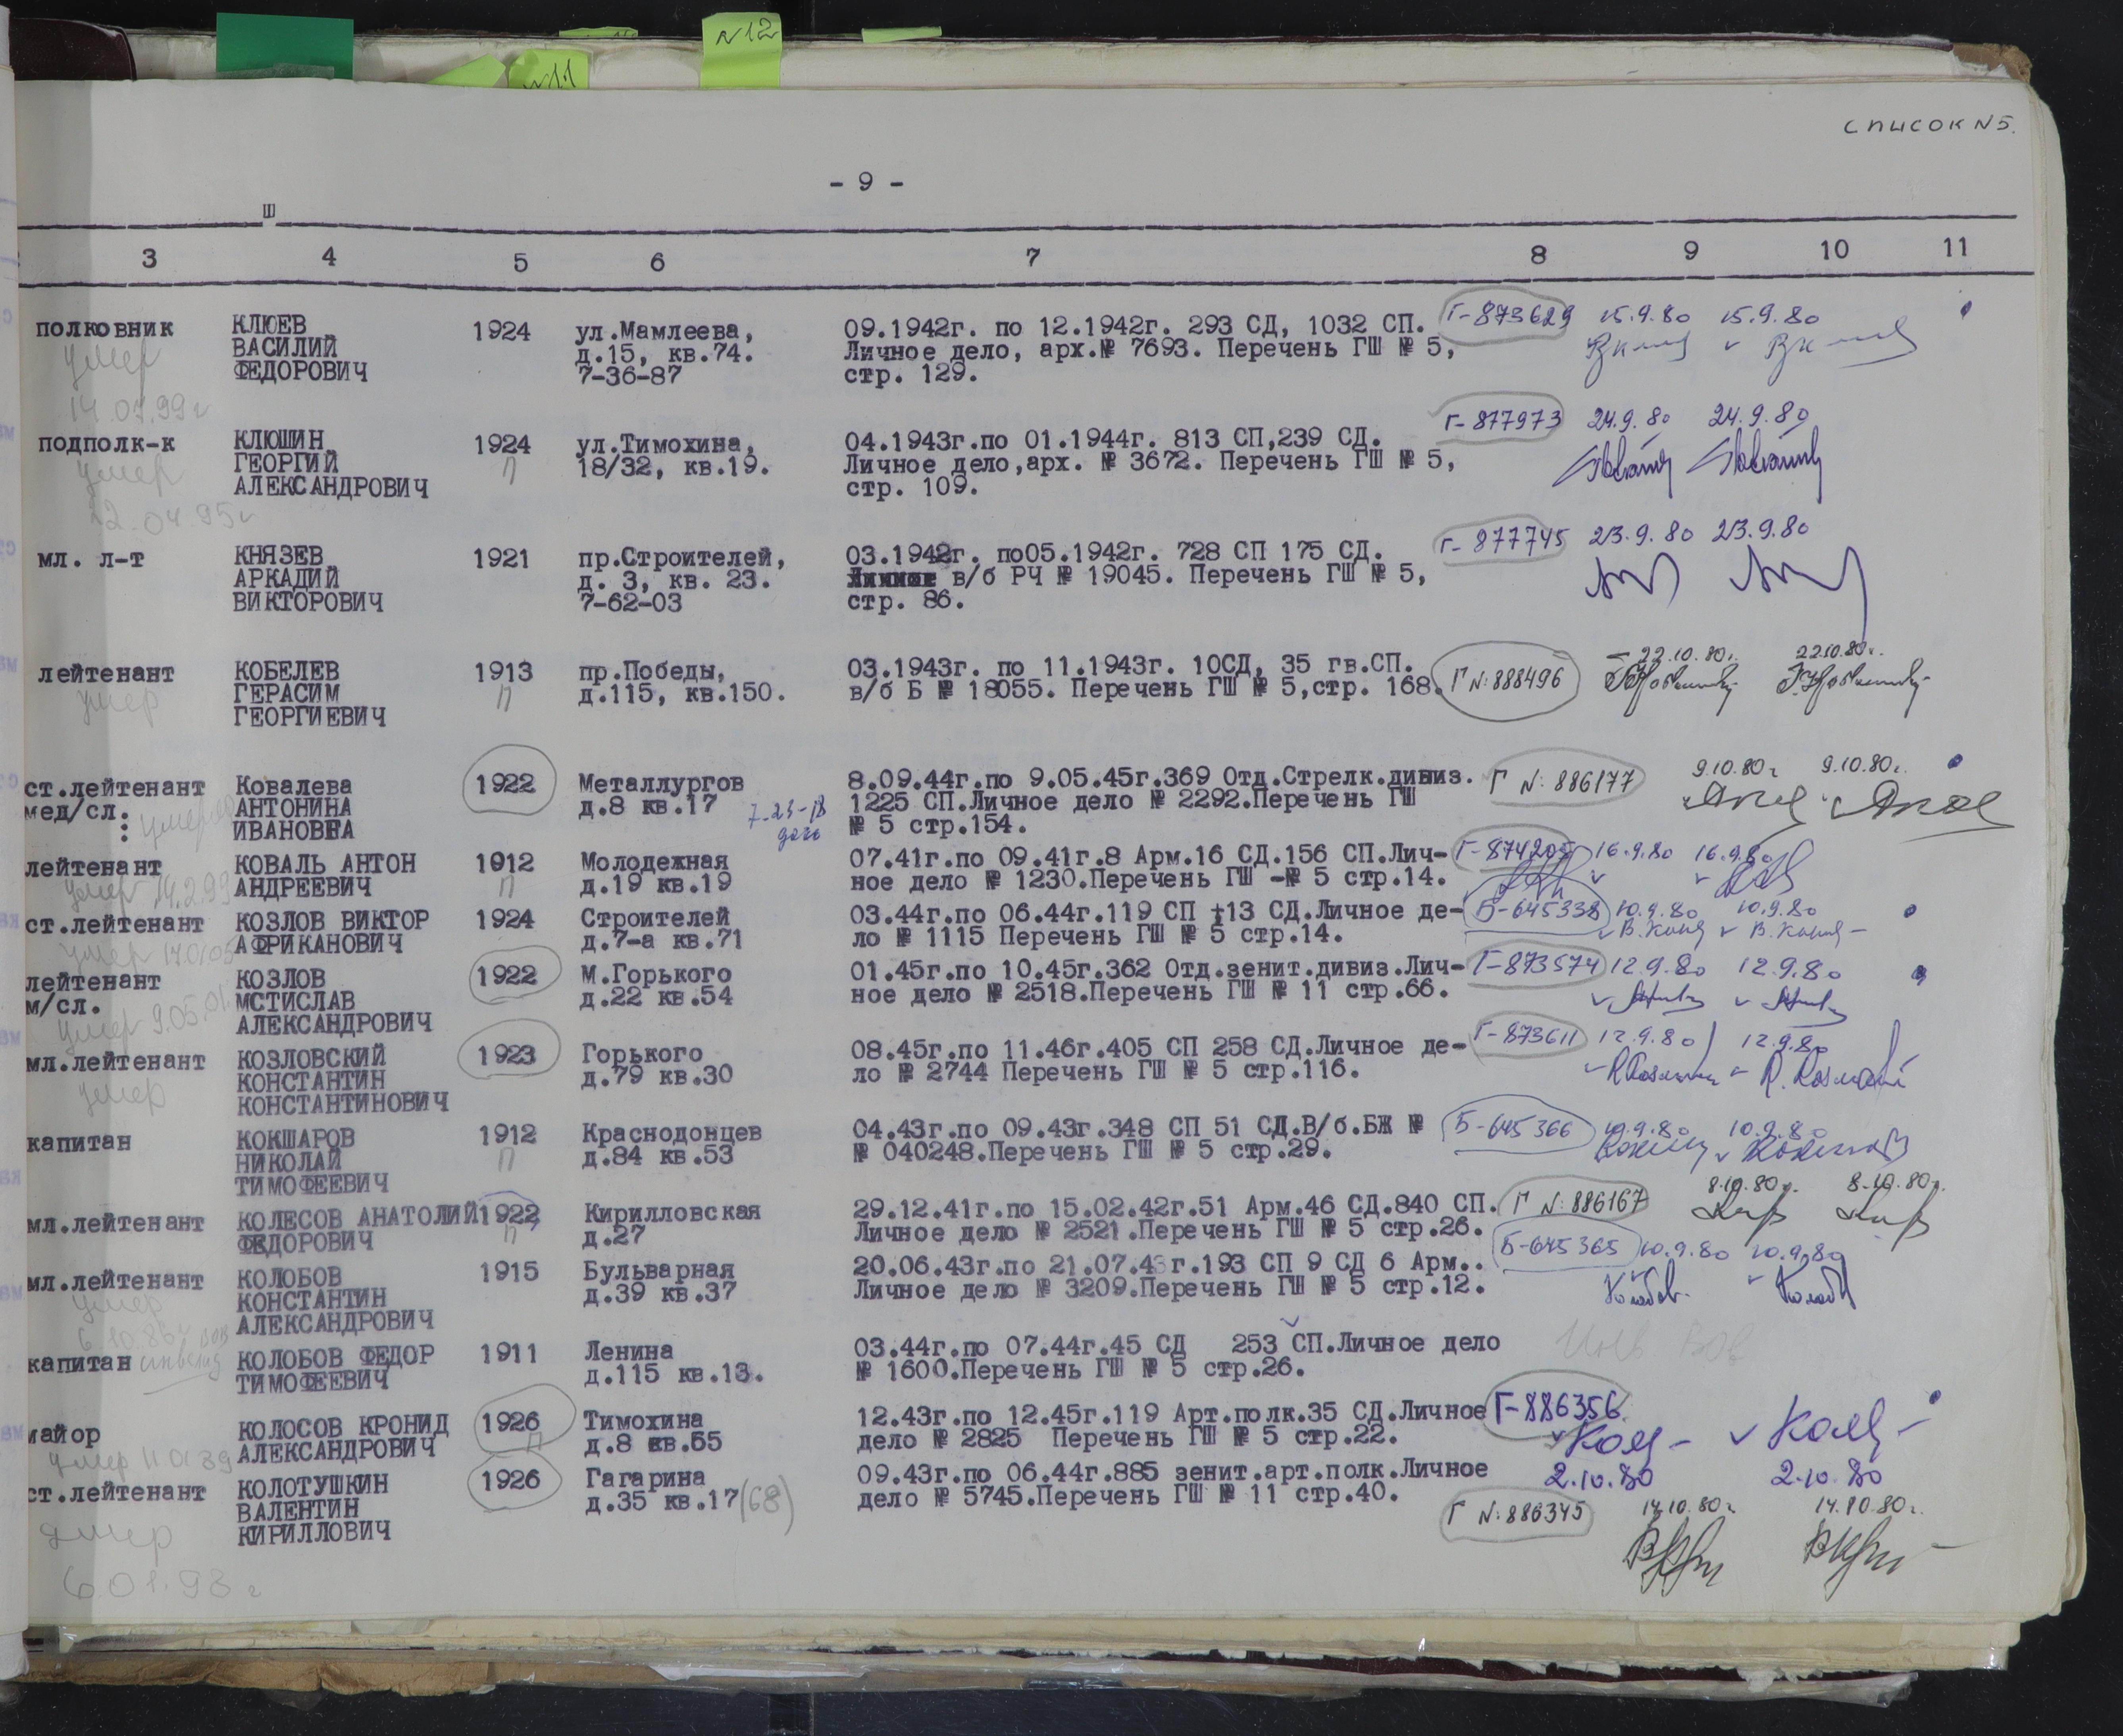 N12
N11
список N5.
- 9 -
ш
3 4 5 6 7 8 9 10 11
полковник КЛЮЕВ 1924 ул.Мамлеева, 09.1942г. по 12.1942г. 293 СД, 1032 СП. Г-873629 15.9.80 15.9.80
умер ВАСИЛИЙ д.15, кв.74. Личное дело, арх.№ 7693. Перечень ГШ № 5,
ФЕДОРОВИЧ 7-36-87 стр. 129.
14.07.99г
подполк-к КЛЮШИН 1924 ул.Тимохина, 04.1943г.по 01.1944г. 813 СП,239 СД. Г-877973 24.9.80 24.9.80
умер ГЕОРГИЙ П 18/32, кв.19. Личное дело,арх. № 3672. Перечень ГШ № 5,
АЛЕКСАНДРОВИЧ стр. 109.
22.04.95г
мл. л-т КНЯЗЕВ 1921 пр.Строителей, 03.1942г. по05.1942г. 728 СП 175 СД. Г-877745 23.9.80 23.9.80
АРКАДИЙ д. 3, кв. 23. в/б РЧ № 19045. Перечень ГШ № 5,
ВИКТОРОВИЧ 7-62-03 стр. 86.
лейтенант КОБЕЛЕВ 1913 пр.Победы, 03.1943г. по 11.1943г. 10СД, 35 гв.СП. Г N: 888496 22.10.80г. 22.10.80г.
умер ГЕРАСИМ П д.115, кв.150. в/б Б № 18055. Перечень ГШ № 5,стр. 168.
ГЕОРГИЕВИЧ
ст.лейтенант Ковалева 1922 Металлургов 8.09.44г.по 9.05.45г.369 Отд.Стрелк.дивиз. Г N: 886177 9.10.80г 9.10.80г.
мед/сл. АНТОНИНА д.8 кв.17 7-23-18 1225 СП.Личное дело № 2292.Перечень ГШ
ИВАНОВНА № 5 стр.154.
лейтенант КОВАЛЬ АНТОН 1912 Молодежная 07.41г.по 09.41г.8 Арм.16 СД.156 СП.Лич- Г-874205 16.9.80 16.9.80
умер 14.2.99 АНДРЕЕВИЧ П д.19 кв.19 ное дело № 1230.Перечень ГШ -№ 5 стр.14.
ст.лейтенант КОЗЛОВ ВИКТОР 1924 Строителей 03.44г.по 06.44г.119 СП 13 СД.Личное де- Б-645338 10.9.80 10.9.80
умер АФРИКАНОВИЧ д.7-а кв.71 ло № 1115 Перечень ГШ № 5 стр.14.
лейтенант КОЗЛОВ 1922 М.Горького 01.45г.по 10.45г.362 Отд.зенит.дивиз.Лич- Г-873574 12.9.80 12.9.80
м/сл. МСТИСЛАВ д.22 кв.54 ное дело № 2518.Перечень ГШ № 11 стр.66.
умер 9.05.01 АЛЕКСАНДРОВИЧ
мл.лейтенант КОЗЛОВСКИЙ 1923 Горького 08.45г.по 11.46г.405 СП 258 СД.Личное де- Г-873611 12.9.80 12.9.80
умер КОНСТАНТИН д.79 кв.30 ло № 2744 Перечень ГШ № 5 стр.116.
КОНСТАНТИНОВИЧ
капитан КОКШАРОВ 1912 Краснодонцев 04.43г.по 09.43г.348 СП 51 СД.В/б.БЖ № Б-645366 10.9.80 10.9.80
НИКОЛАЙ П д.84 кв.53 № 040248.Перечень ГШ № 5 стр.29.
ТИМОФЕЕВИЧ
мл.лейтенант КОЛЕСОВ АНАТОЛИЙ 1922 Кирилловская 29.12.41г.по 15.02.42г.51 Арм.46 СД.840 СП. Г N: 886167 8.10.80г. 8.10.80г.
ФЕДОРОВИЧ П д.27 Личное дело № 2521.Перечень ГШ № 5 стр.26.
мл.лейтенант КОЛОБОВ 1915 Бульварная 20.06.43г.по 21.07.43г.193 СП 9 СД 6 Арм.. Б-645365 10.9.80 10.9.80
умер КОНСТАНТИН д.39 кв.37 Личное дело № 3209.Перечень ГШ № 5 стр.12.
6.10.86г АЛЕКСАНДРОВИЧ
капитан инвалид КОЛОБОВ ФЕДОР 1911 Ленина 03.44г.по 07.44г.45 СД 253 СП.Личное дело Инв ВОв
ТИМОФЕЕВИЧ д.115 кв.13. № 1600.Перечень ГШ № 5 стр.26.
майор КОЛОСОВ КРОНИД 1926 Тимохина 12.43г.по 12.45г.119 Арт.полк.35 СД.Личное Г-886356
умер АЛЕКСАНДРОВИЧ П д.8 кв.55 дело № 2825 Перечень ГШ № 5 стр.22. 2.10.80 2.10.80
ст.лейтенант КОЛОТУШКИН 1926 Гагарина 09.43г.по 06.44г.885 зенит.арт.полк.Личное
ВАЛЕНТИН д.35 кв.17 (68) дело № 5745.Перечень ГШ № 11 стр.40. Г N: 886345 14.10.80г 14.10.80г.
умер КИРИЛЛОВИЧ
6.01.93г